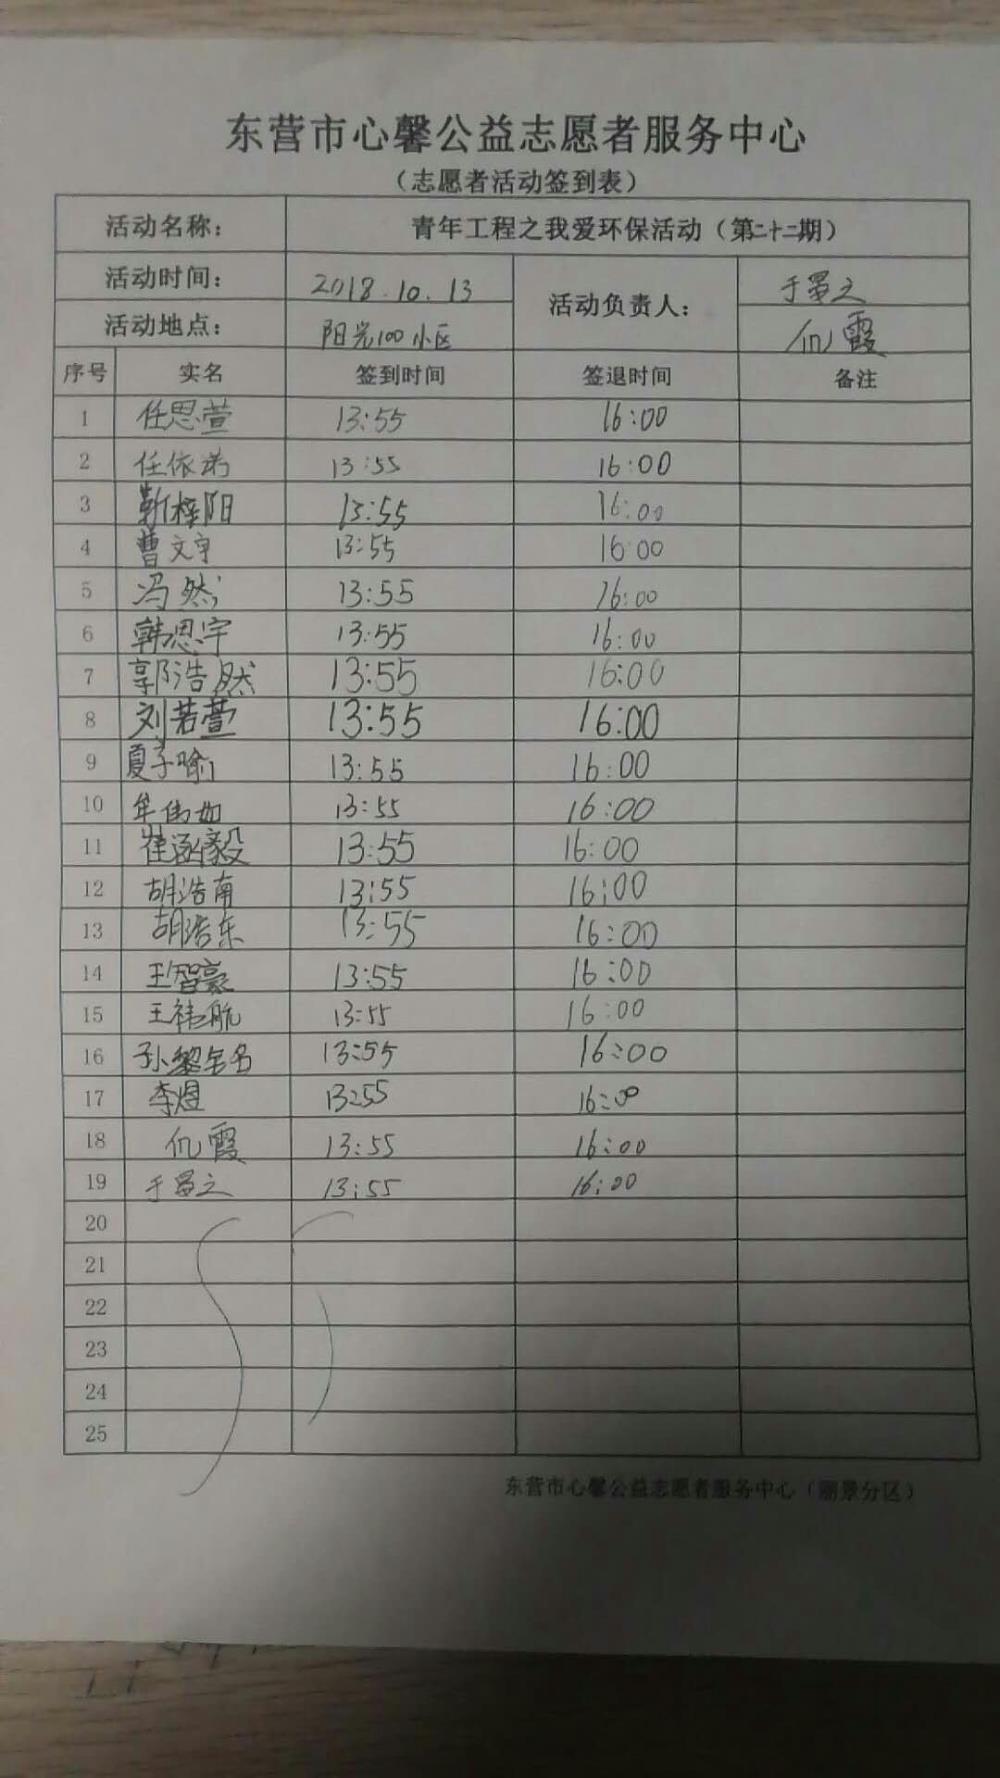 东营市心馨公益志愿者服务中心
（志愿者活动签到表）
活动名称： 青年工程之我爱环保活动（第二十二期）
活动时间： 2018.10.13 活动负责人： 于
活动地点： 阳光100小区 仉霞
序号 实名 签到时间 签退时间 备注
1 任思萱 13:55 16:00
2 任依 13:55 16:00
3 靳梓阳 13:55 16:00
4 曹文宇 13:55 16:00
5 冯然 13:55 16:00
6 韩思宇 13:55 16:00
7 郭浩然 13:55 16:00
8 刘若萱 13:55 16:00
9 夏子喻 13:55 16:00
10 牟伟如 13:55 16:00
11 崔涵毅 13:55 16:00
12 胡浩南 13:55 16:00
13 胡浩东 13:55 16:00
14 王智豪 13:55 16:00
15 王祎航 13:55 16:00
16 孙黎 13:55 16:00
17 李煜 13:55 16:00
18 仉霞 13:55 16:00
19 于 13:55 16:00
20
21
22
23
24
25
东营市心馨公益志愿者服务中心（丽景分区）